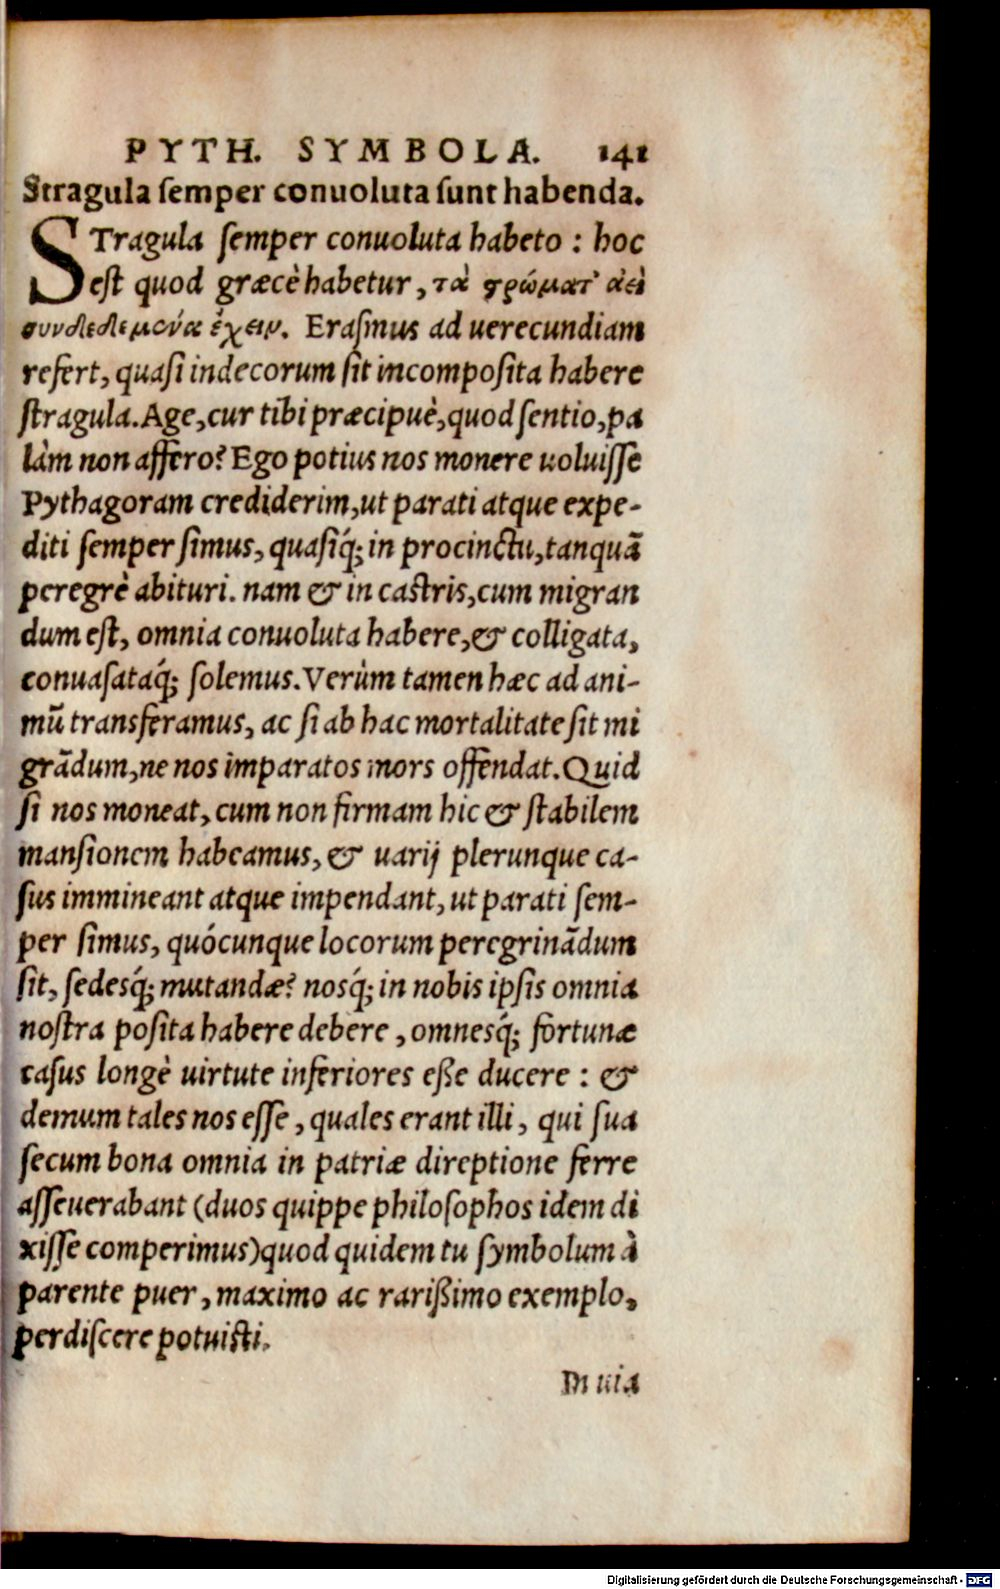 PYTH. SYMBOLA. 141
Stragula semper conuoluta sunt habenda.
STragula semper conuoluta habeto : hoc
est quod græcè habetur, τὰ ϛρώματ' ἀεὶ
συνδεδεμένα ἔχειν. Erasmus ad uerecundiam
refert, quasi indecorum sit incomposita habere
stragula. Age, cur tibi præcipuè, quod sentio, pa
làm non affero? Ego potius nos monere uoluisse
Pythagoram crediderim, ut parati atque expe-
diti semper simus, quasiq́; in procinctu, tanquã
peregrè abituri. nam & in castris, cum migran
dum est, omnia conuoluta habere, & colligata,
conuasataq́; solemus. Verùm tamen hæc ad ani-
mũ transferamus, ac si ab hac mortalitate sit mi
grãdum, ne nos imparatos mors offendat. Quid
si nos moneat, cum non firmam hic & stabilem
mansionem habeamus, & uarij plerunque ca-
sus immineant atque impendant, ut parati sem-
per simus, quócunque locorum peregrinãdum
sit, sedesq́; mutandæ? nosq́; in nobis ipsis omnia
nostra posita habere debere, omnesq́; fortunæ
casus longè uirtute inferiores eße ducere : &
demum tales nos esse, quales erant illi, qui sua
secum bona omnia in patriæ direptione ferre
asseuerabant (duos quippe philosophos idem di
xisse comperimus) quod quidem tu symbolum à
parente puer, maximo ac rarißimo exemplo,
perdiscere potuisti.
In uia
Digitalisierung gefördert durch die Deutsche Forschungsgemeinschaft - DFG